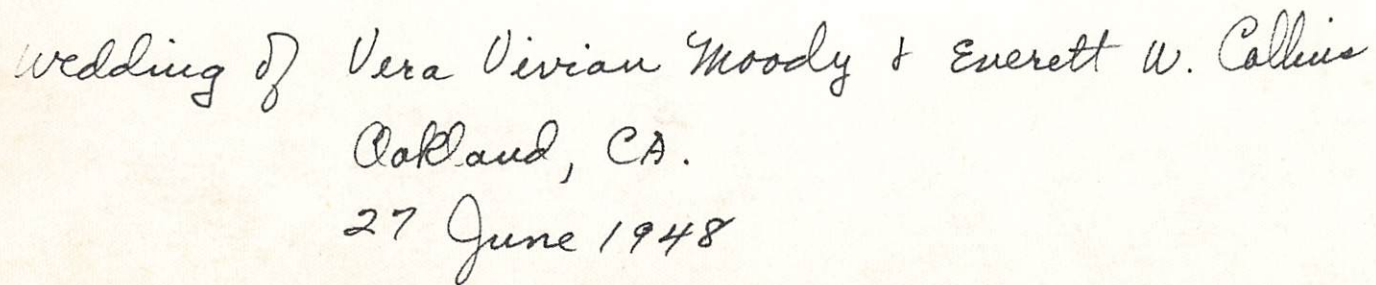 Wedding of Vera Vivian Moody & Everett W. Collins
Oakland, CA.
27 June 1948